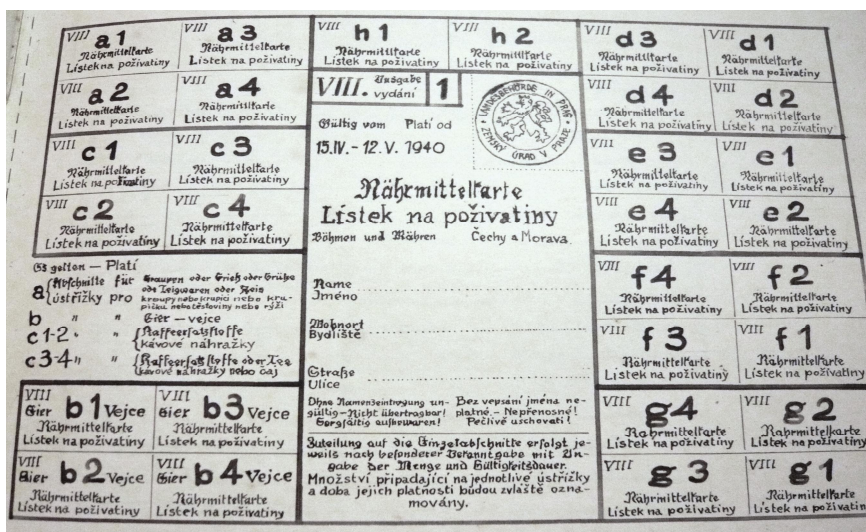 VIII a1
Nährmittelkarte
Lístek na poživatiny
VIII a3
Nährmittelkarte
Lístek na poživatiny
VIII a2
Nährmittelkarte
Lístek na poživatiny
VIII a4
Nährmittelkarte
Lístek na poživatiny
VIII c1
Nährmittelkarte
Lístek na poživatiny
VIII c3
Nährmittelkarte
Lístek na poživatiny
VIII c2
Nährmittelkarte
Lístek na poživatiny
VIII c4
Nährmittelkarte
Lístek na poživatiny
Es gelten — Platí
a Abschnitte für Graupen oder Grieß oder Grütze
od. Teigwaren oder Reis
ústřižky pro kroupy nebo krupici nebo kru-
pičku nebo těstoviny nebo rýži
b " " Eier — vejce
c1-2 " " Kaffeersatzstoffe
kávové náhražky
c3-4 " " Kaffeersatzstoffe oder Tee
kávové náhražky nebo čaj
VIII
Eier b1 Vejce
Nährmittelkarte
Lístek na poživatiny
VIII
Eier b3 Vejce
Nährmittelkarte
Lístek na poživatiny
VIII
Eier b2 Vejce
Nährmittelkarte
Lístek na poživatiny
VIII
Eier b4 Vejce
Nährmittelkarte
Lístek na poživatiny
VIII h1
Nährmittelkarte
Lístek na poživatiny
VIII h2
Nährmittelkarte
Lístek na poživatiny
VIII. Ausgabe
vydání 1
LANDESBEHÖRDE IN PRAG
ZEMSKÝ ÚŘAD V PRAZE
Gültig vom Platí od
15.IV. - 12.V. 1940
Nährmittelkarte
Lístek na poživatiny
Böhmen und Mähren Čechy a Morava
Name
Jméno
Wohnort
Bydliště
Straße
Ulice
Ohne Namenseintragung un-
gültig - Nicht übertragbar!
Sorgfältig aufbewaren!
Bez vepsání jména ne-
platné. - Nepřenosné!
Pečlivě uschovati!
Zuteilung auf die Einzelabschnitte erfolgt je-
weils nach besonderer Bekanntgabe mit An-
gabe der Menge und Gültigkeitsdauer.
Množství připadající na jednotlivé ústřižky
a doba jejich platnosti budou zvláště ozná-
movány.
VIII d3
Nährmittelkarte
Lístek na poživatiny
VIII d1
Nährmittelkarte
Lístek na poživatiny
VIII d4
Nährmittelkarte
Lístek na poživatiny
VIII d2
Nährmittelkarte
Lístek na poživatiny
VIII e3
Nährmittelkarte
Lístek na poživatiny
VIII e1
Nährmittelkarte
Lístek na poživatiny
VIII e4
Nährmittelkarte
Lístek na poživatiny
VIII e2
Nährmittelkarte
Lístek na poživatiny
VIII f4
Nährmittelkarte
Lístek na poživatiny
VIII f2
Nährmittelkarte
Lístek na poživatiny
VIII f3
Nährmittelkarte
Lístek na poživatiny
VIII f1
Nährmittelkarte
Lístek na poživatiny
VIII g4
Nährmittelkarte
Lístek na poživatiny
VIII g2
Nährmittelkarte
Lístek na poživatiny
VIII g3
Nährmittelkarte
Lístek na poživatiny
VIII g1
Nährmittelkarte
Lístek na poživatiny